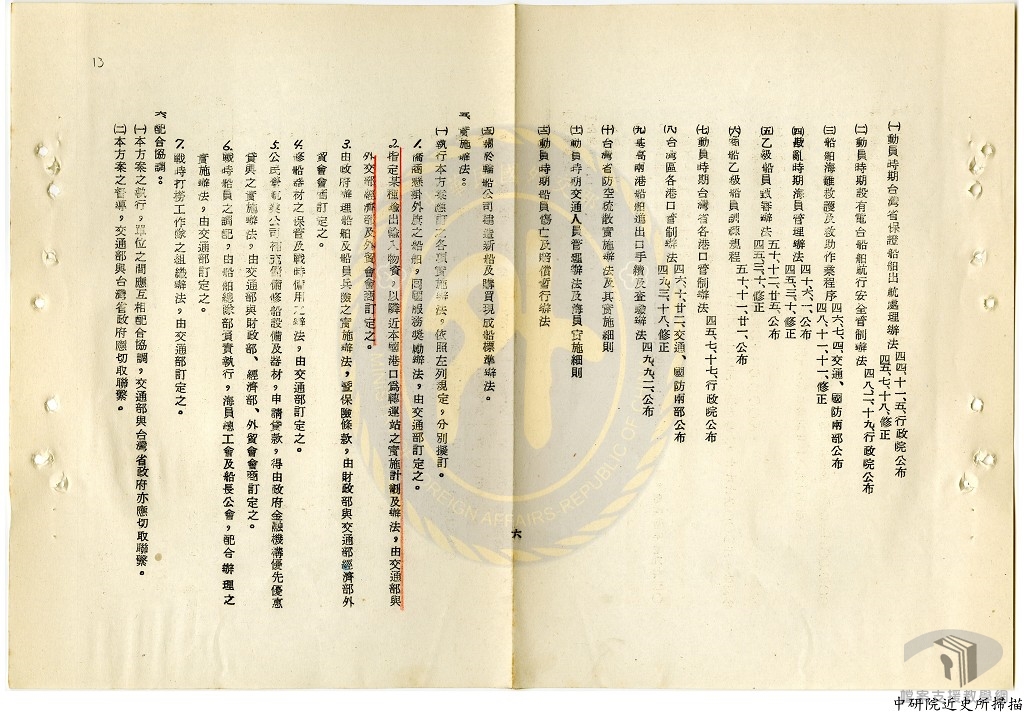 ㈠動員時期台灣省保證船舶出航處理辦法 四四、十一、五、行政院公布
四五、七、十八、修正
㈡動員時期設有電台船舶航行安全管制辦法 四八、二、十九、行政院公布
㈢船舶海難救護及救助作業程序 四六、七、四、交通、國防兩部公布
四八、十一、十一、修正
㈣戡亂時期海員管理辦法 四十、六、一、公布
四五、三、十、修正
㈤乙級船員 辦法 五十、十二、廿五、公布
四五、三、十、修正
㈥商船乙級船員訓練規程 五十、十一、廿一、公布
㈦動員時期台灣省各港口管制辦法 四五、七、十七、行政院公布
㈧台灣區各港口管制辦法 四六、十、廿二、交通、國防兩部公布
四九、三、十八、修正
㈨基高兩港船舶進出口手續及登檢辦法 四九、九、二、公布
㈩台灣省防空疏散實施辦法及其實施細則
㈪動員時期交通人員管理辦法及海員實施細則
㈫動員時期船員傷亡及賠償暫行辦法
六
㈬關於輪船公司建造新船及購買現成船標準辦法。
五、實施辦法：
㈠執行本方案應訂之各項實施辦法，依照左列規定，分別擬訂。
1.商懸掛外旗之船舶，回國服務獎勵辦法，由交通部訂定之。
2.指定某種輸出輸入物資，以鄰近本國港口為轉運站之實施計劃及辦法，由交通部與
外交部經濟部及外貿會會商訂定之。
3.由政府辦理船舶及船員兵險之實施辦法，暨保險條款，由財政部與交通部經濟部外
貿會會商訂定之。
4.修船器材之保管及戰時備用之辦法，由交通部訂定之。
5.公民營航業公司補充備修船設備及器材，申請貸款，得由政府金融機構優先優惠
貸與之實施辦法，由交通部與財政部、經濟部、外貿會會商訂定之。
6.戰時船員之調配，由船舶總隊部負責執行，海員總工會及船長公會，配合辦理之
實施辦法，由交通部訂定之。
7.戰時打撈工作隊之組織辦法，由交通部訂定之。
六、配合協調：
㈠本方案之執行，單位之間應互相配合協調，交通部與台灣省政府亦應切取聯繫。
㈡本方案之督導，交通部與台灣省政府應切取聯繫。
13
FOREIGN AFFAIRS REPUBLIC OF
檔案支援教學網
中研院近史所掃描